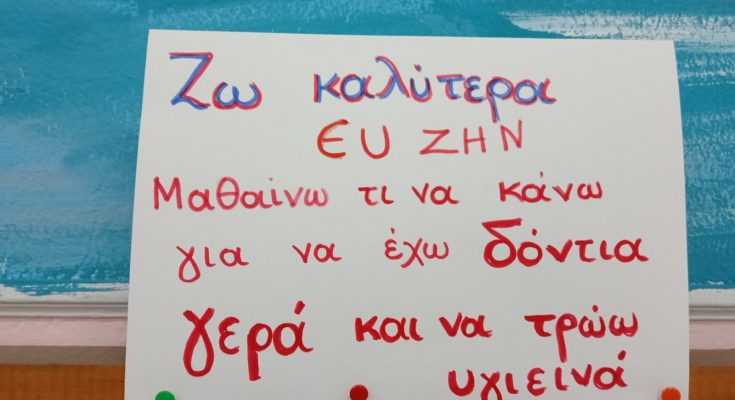 Ζω καλύτερα
ΕΥ ΖΗΝ
Μαθαίνω τι να κάνω
για να έχω δόντια
γερά και να τρώω
υγιεινά